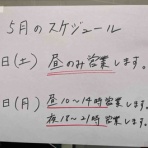 5月のスケジュール
日(土) 昼のみ営業します。
日(月) 昼10〜14時営業します。
夜18〜21時営業します。